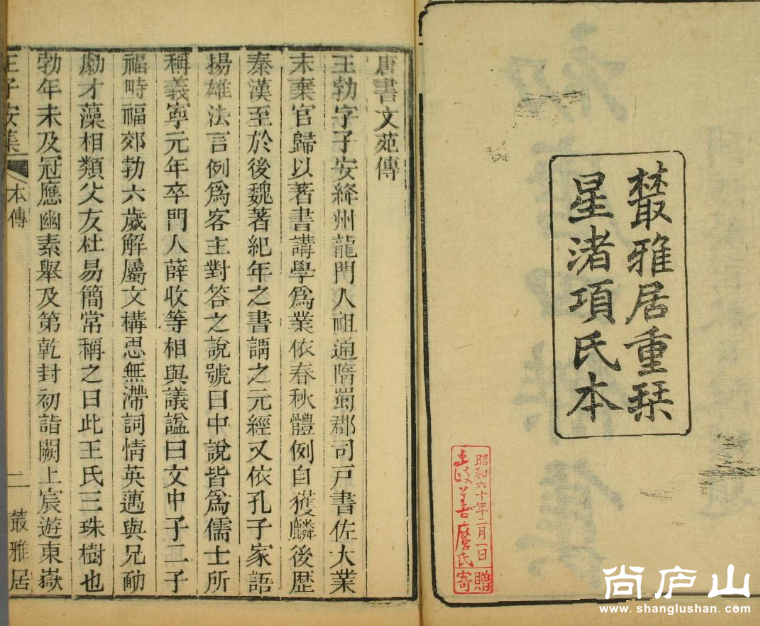 叢雅居重栞
星渚項氏本
昭和六十年二月一日
寄贈
唐書文苑傳
王勃字子安絳州龍門人祖通隋蜀郡司戶書佐大業
末棄官歸以著書講學爲業依春秋體例自獲麟後歷
秦漢至於後魏著紀年之書謂之元經又依孔子家語
揚雄法言例爲客主對答之說號曰中說皆爲儒士所
稱義寧元年卒門人薛收等相與議諡曰文中子二子
福畤福郊勃六歲解屬文構思無滯詞情英邁與兄勔
勮才藻相類父友杜易簡常稱之曰此王氏三珠樹也
勃年未及冠應幽素舉及第乾封初詣闕上宸遊東嶽
王子安集
本傳
一
叢雅居
尚庐山
www.shanglushan.com